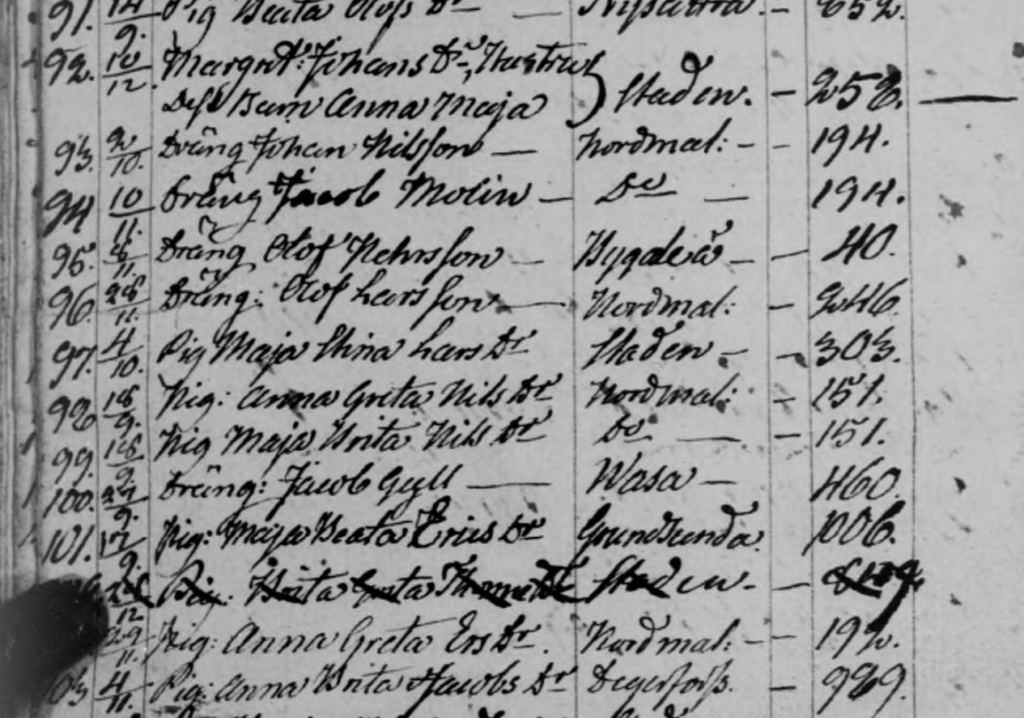 91. 14/9. Pig Beata Olofs Dr — Nysätra. — 652.
92. 10/12. Margret: Johans Dr, Hustru
Dess Barn Anna Maja } Staden. — 258. —
93. 2/10. Dräng Johan Nilsson — Nordmal: — 194.
94 10/11. Dräng Jacob Molin — Do — 194.
95. 11. Dräng Olof Pehrsson — Bygdeå — 40.
96. 28/11. Dräng: Olof Larsson — Nordmal: — 246.
97. 4/10. Pig Maja Stina Lars Dr Staden — 303.
98 18/9. Pig: Anna Greta Nils Dr Nordmal: — 151.
99. 18/9. Pig Maja Brita Nils Dr Do — 151.
100. 27/9. Dräng: Jacob Gyll — Wasa — 460.
101. 17/9. Pig: Maja Beata Erics Dr Grundsunda. 1006.
Pig: Brita Greta Staden. —
29/11. Pig: Anna Greta Ers Dr. Nordmal: — 192.
103 4/11. Pig: Anna Brita Jacobs Dr Degerforss. — 989.